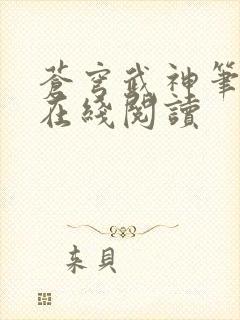 蒼穹武神筆
在綫閱讀
来貝